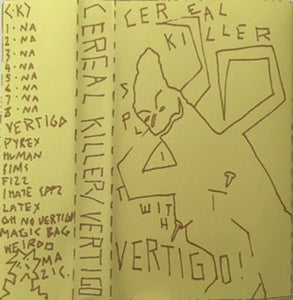 (CK)
1. NA
2. NA
3. NA
4. NA
5. NA
6. NA
7. NA
8. NA
VERTIGO
PYREX
HUMAN
SIMS
FIZZ
I HATE SPPZ
LATEX
OH NO VERTIGO
MAGIC BAG
WEIRDO
MA
ZIC.
CEREAL KILLER/VERTIGO
CEREAL
KILLER
SPLIT
WITH
VERTIGO!